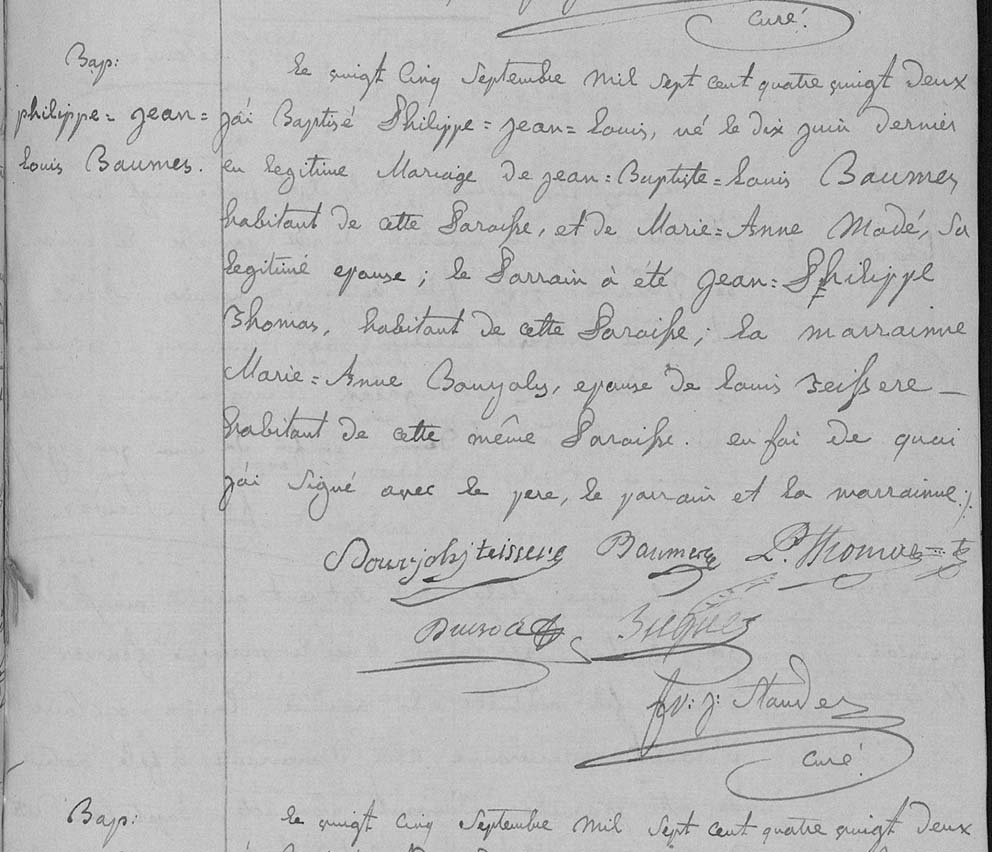 curé.
Bap:
philippe= jean=
Louis Baumes.
Le vingt Cinq Septembre Mil Sept cent quatre vingt deux
j'ai Baptisé Philippe= jean= Louis, né le dix juin dernier
en Legitime Mariage de jean= Baptiste= Louis Baumes
habitant de cette Paroisse, et de Marie= Anne Madé, Sa
Legitime epouse; le Parrain à été jean= Philippe
Thomas, habitant de cette Paroisse; La marrainne
Marie= Anne Bourjoly, epouse de Louis Teissere
habitant de cette même Paroisse. en foi de quoi
j'ai Signé avec le pere, le parrain et la marrainne./.
Bourjoly teissere Baumes P. Thomas
fr: j: Stander
Curé
Bap:
Le vingt Cinq Septembre Mil Sept cent quatre vingt deux